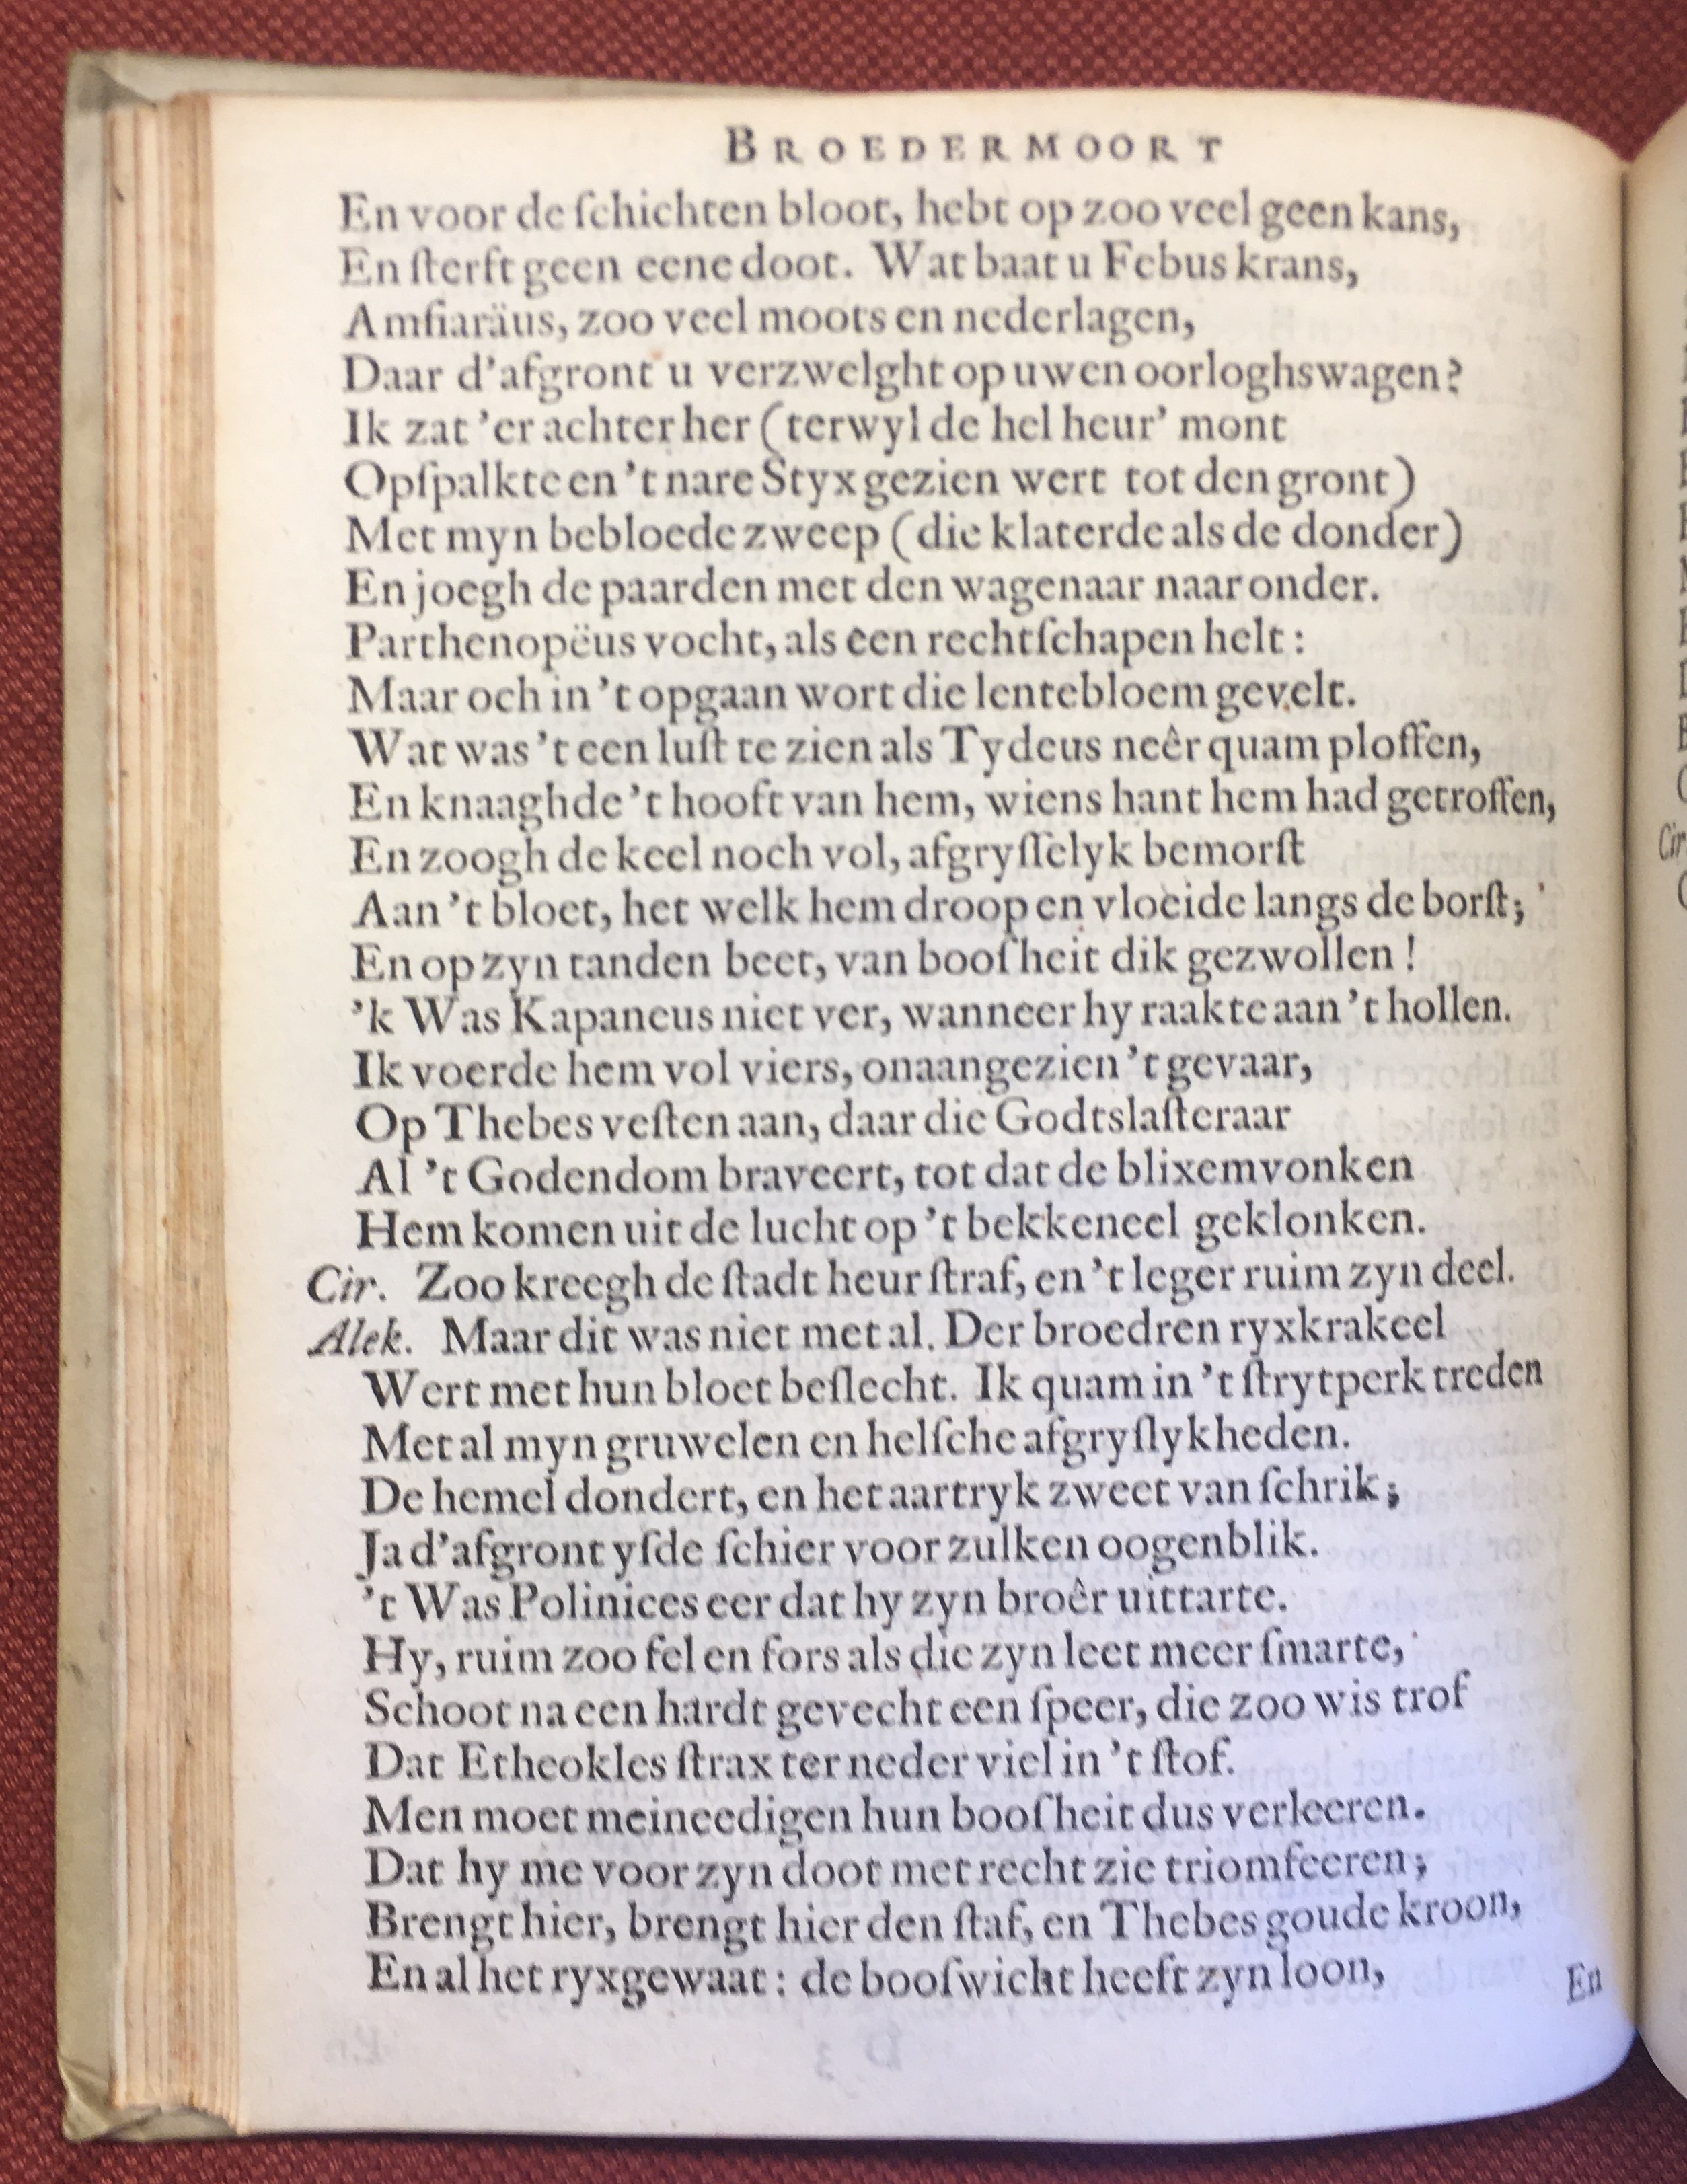 BROEDERMOORT
En voor de ſchichten bloot, hebt op zoo veel geen kans,
En ſterft geen eene doot. Wat baat u Febus krans,
Amfiaräus, zoo veel moots en nederlagen,
Daar d'afgront u verzwelght op uwen oorloghswagen?
Ik zat 'er achter her (terwyl de hel heur' mont
Opſpalkte en 't nare Styx gezien wert tot den gront)
Met myn bebloede zweep (die klaterde als de donder)
En joegh de paarden met den wagenaar naar onder.
Parthenopëus vocht, als een rechtſchapen helt:
Maar och in 't opgaan wort die lentebloem gevelt.
Wat was 't een luſt te zien als Tydeus neêr quam ploffen,
En knaaghde 't hooft van hem, wiens hant hem had getroffen,
En zoogh de keel noch vol, afgryſſelyk bemorſt
Aan 't bloet, het welk hem droop en vloeide langs de borſt;
En op zyn tanden beet, van boofheit dik gezwollen!
'k Was Kapaneus niet ver, wanneer hy raakte aan 't hollen.
Ik voerde hem vol viers, onaangezien 't gevaar,
Op Thebes veſten aan, daar die Godtslaſteraar
Al 't Godendom braveert, tot dat de blixemvonken
Hem komen uit de lucht op 't bekkeneel geklonken.
Cir. Zoo kreegh de ſtadt heur ſtraf, en 't leger ruim zyn deel.
Alek. Maar dit was niet met al. Der broedren ryxkrakeel
Wert met hun bloet beſlecht. Ik quam in 't ſtrytperk treden
Met al myn gruwelen en helſche afgryſlykheden.
De hemel dondert, en het aartryk zweet van ſchrik;
Ja d'afgront yſde ſchier voor zulken oogenblik.
't Was Polinices eer dat hy zyn broêr uittarte.
Hy, ruim zoo fel en fors als die zyn leet meer ſmarte,
Schoot na een hardt gevecht een ſpeer, die zoo wis trof
Dat Etheokles ſtrax ter neder viel in 't ſtof.
Men moet meineedigen hun boofheit dus verleeren.
Dat hy me voor zyn doot met recht zie triomfeeren;
Brengt hier, brengt hier den ſtaf, en Thebes goude kroon,
En al het ryxgewaat: de booſwicht heeft zyn loon,
En